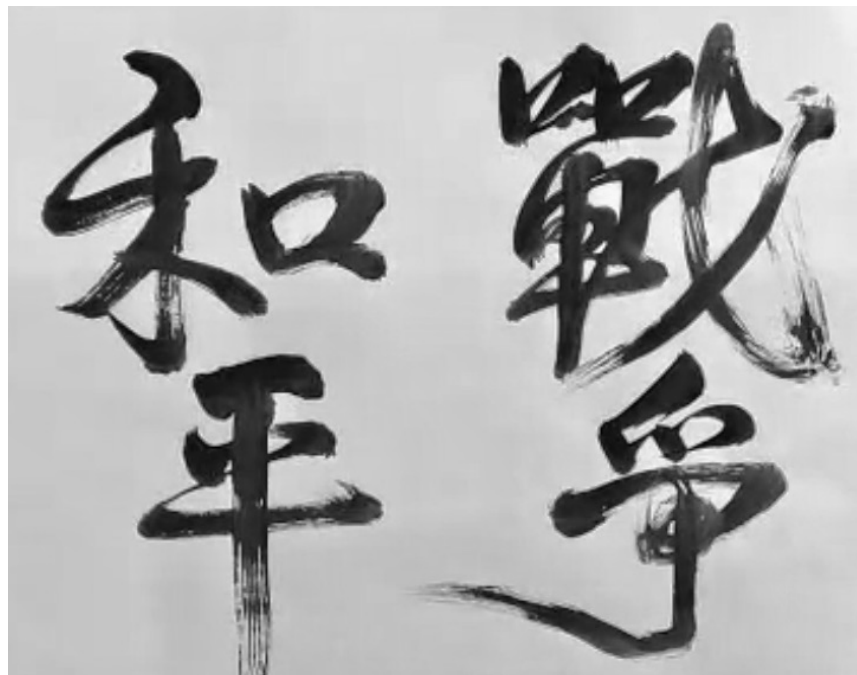 戰爭
和平